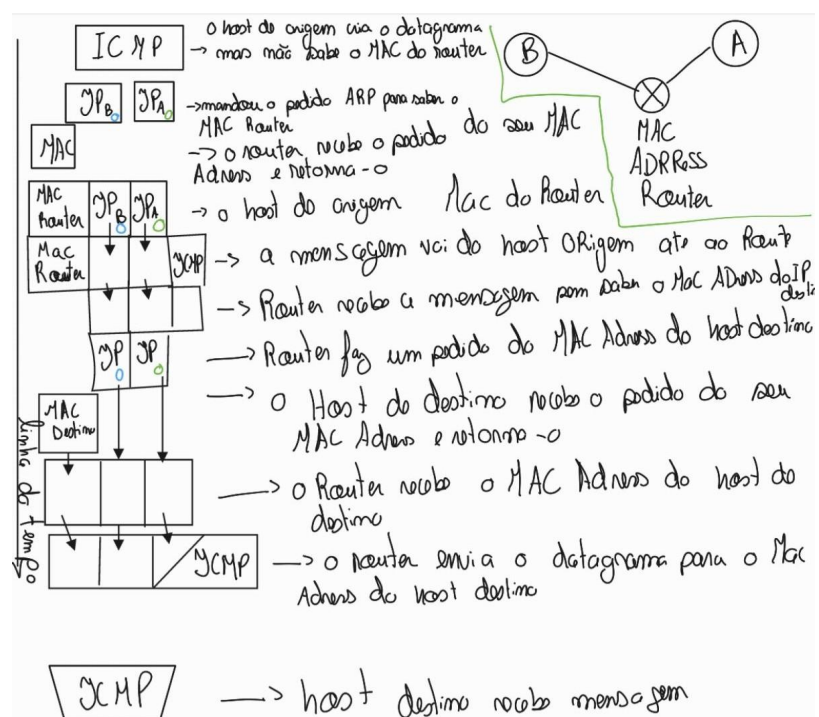 ICMP
o host de origem cria o datagrama
→ mas não sabe o MAC do router
B
A
MAC
ADRRess
Router
IPB
IPA
→ mandou o pedido ARP para saber o
MAC Router
MAC
→ o router recebe o pedido do seu MAC
Adress e retorna-o
MAC
Router
IPB
IPA
→ o host de origem
Mac do Router
Mac
Router
ICMP
→ a mensagem vai do host ORigem ate ao Route
→ Router recebe a mensagem sem saber o Mac ADress do IP
desti
IP
IP
→ Router faz um pedido do MAC Adress do host destino
MAC
Destino
→ o Host de destino recebe o pedido do seu
MAC Adress e retorna-o
linha do tempo
→ o Router recebe o MAC Adress do host de
destino
ICMP
→ o router envia o datagrama para o Mac
Adress do host destino
ICMP
→ host destino recebe mensagem